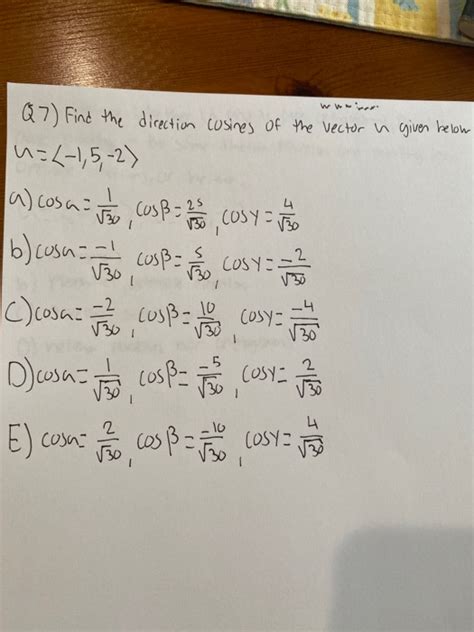 Q7) Find the direction cosines of the vector u given below
u = <-1, 5, -2>
a) cosα = 1/√30, cosβ = 25/√30, cosγ = 4/√30
b) cosα = -1/√30, cosβ = 5/√30, cosγ = -2/√30
C) cosα = -2/√30, cosβ = 10/√30, cosγ = -4/√30
D) cosα = 1/√30, cosβ = -5/√30, cosγ = 2/√30
E) cosα = 2/√30, cosβ = -10/√30, cosγ = 4/√30